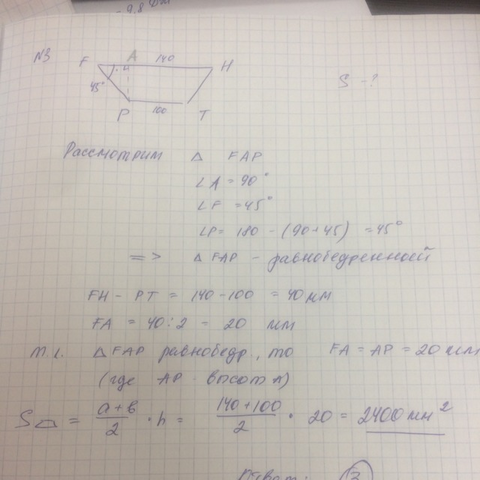 -9,8 дм
N3
F A 140 H
S - ?
45°
P 100 T
Рассмотрим △ FAP
∠A = 90°
∠F = 45°
∠P = 180 - (90+45) = 45°
=> △ FAP - равнобедренной
FH - PT = 140-100 = 40 мм
FA = 40 : 2 = 20 мм
т. к. △ FAP равнобедр, то FA = AP = 20 мм
(где AP - высота)
S = a+b/2 · h = 140+100/2 · 20 = 2400 мм²
Ответ: 3